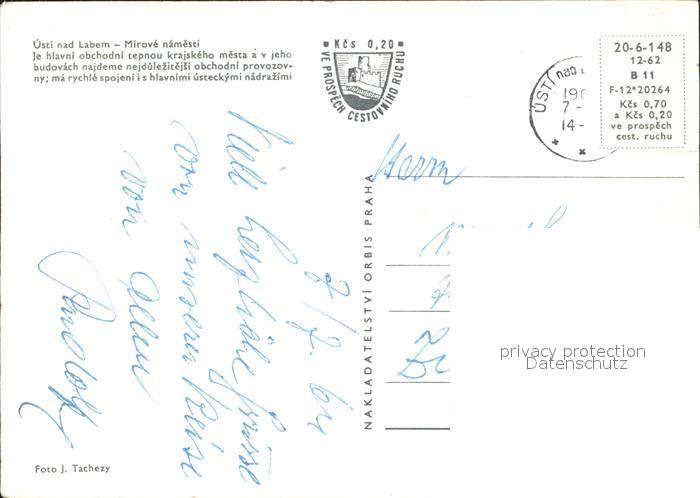 Ústí nad Labem – Mírové náměstí
Je hlavní obchodní tepnou krajského města a v jeho
budovách najdeme nejdůležitější obchodní provozov-
ny; má rychlé spojení i s hlavními ústeckými nádražími
Kčs 0,20
VE PROSPĚCH CESTOVNÍHO RUCHU
ÚSTÍ nad
7 -
14 -
20-6-148
12-62
B 11
F-12*20264
Kčs 0,70
a Kčs 0,20
ve prospěch
cest. ruchu
Viele herzliche Grüsse
von unserer Reise
von allen
Rudolf
Herrn
NAKLADATELSTVÍ ORBIS PRAHA
privacy protection
Datenschutz
Foto J. Tachezy